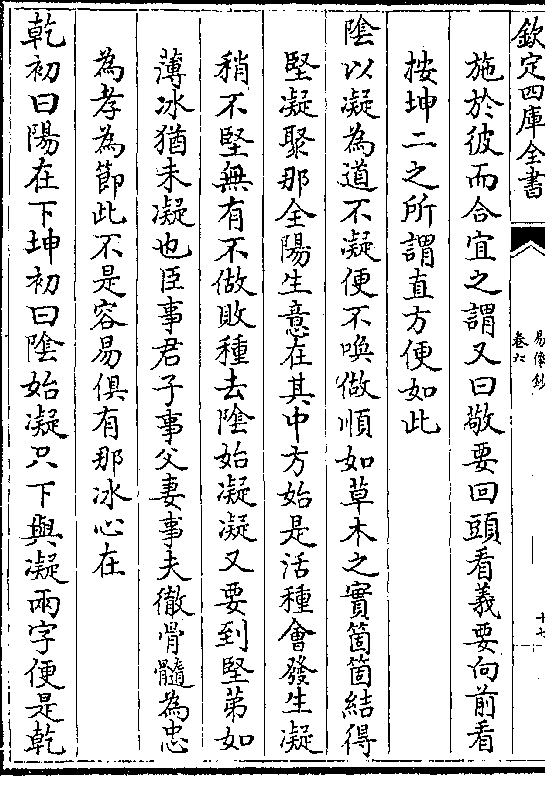 欽定四庫全書
易像鈔
卷六
十七
施於彼而合宜之謂又曰敬要回頭看義要向前看
按坤二之所謂直方便如此
陰以凝為道不凝便不喚做順如草木之實箇箇結得
堅凝聚那全陽生意在其中方始是活種會發生凝
稍不堅無有不做敗種去陰始凝凝又要到堅第如
薄冰猶未凝也臣事君子事父妻事夫徹骨髓為忠
為孝為節此不是容易俱有那冰心在
乾初曰陽在下坤初曰陰始凝只下與凝兩字便是乾